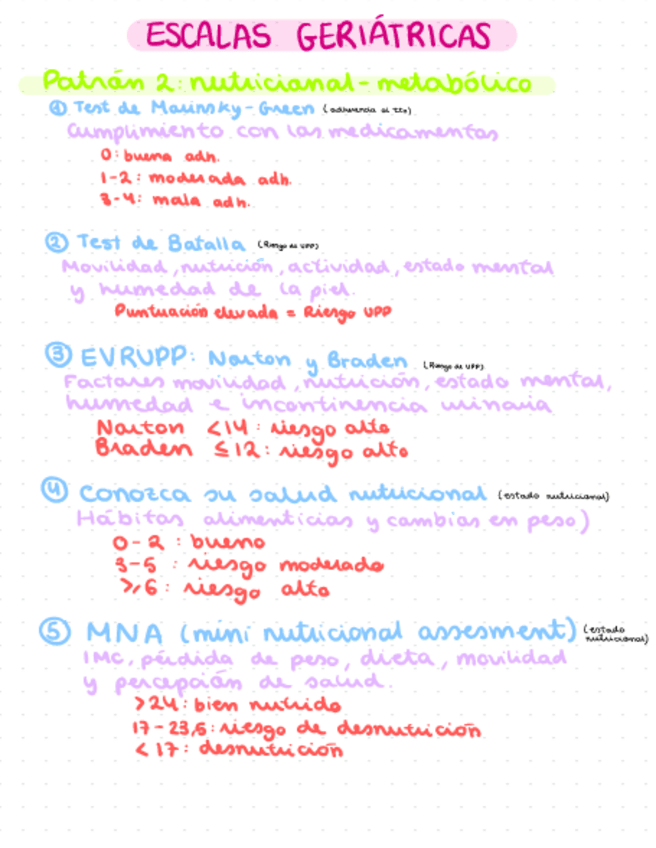 ESCALAS GERIÁTRICAS
Patrón 2: nutricional-metabólico
① Test de Morinsky-Green (adherencia al tto)
Cumplimiento con los medicamentos
0: buena adh.
1-2: moderada adh.
3-4: mala adh.
② Test de Batalla (Riesgo de UPP)
Movilidad, nutrición, actividad, estado mental
y humedad de la piel.
Puntuación elevada = Riesgo UPP
③ EVRUPP: Norton y Braden (Riesgo de UPP)
Factores movilidad, nutrición, estado mental,
humedad e incontinencia urinaria
Norton <14: riesgo alto
Braden ≤12: riesgo alto
④ Conozca su salud nutricional (estado nutricional)
Hábitos alimenticios y cambios en peso)
0-2: bueno
3-5: riesgo moderado
≥6: riesgo alto
⑤ MNA (mini nutricional assesment) (estado nutricional)
IMC, pérdida de peso, dieta, movilidad
y percepción de salud.
>24: bien nutrido
17-23,5: riesgo de desnutrición
<17: desnutrición